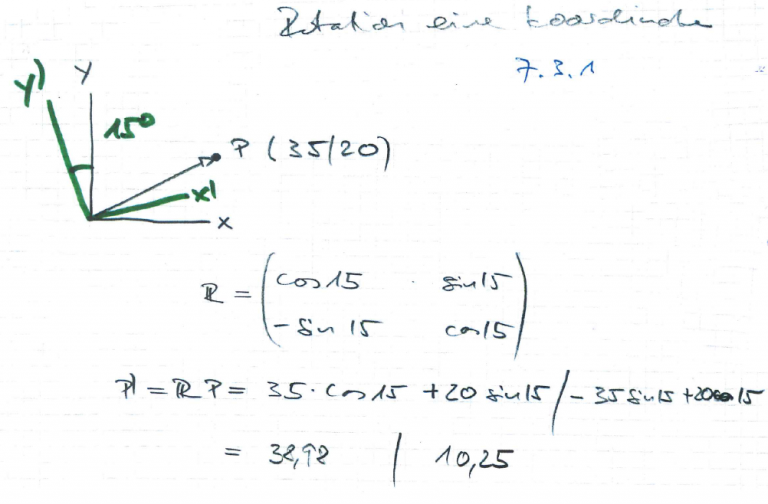 Rotation eine Koordinate
7.3.1
y' y
15°
P (35/20)
x'
x
R = (cos15 sin15
-sin 15 cos15)
P' = R P = 35·cos15 +20 sin15 / -35 sin15 +20cos15
= 38,98 | 10,25